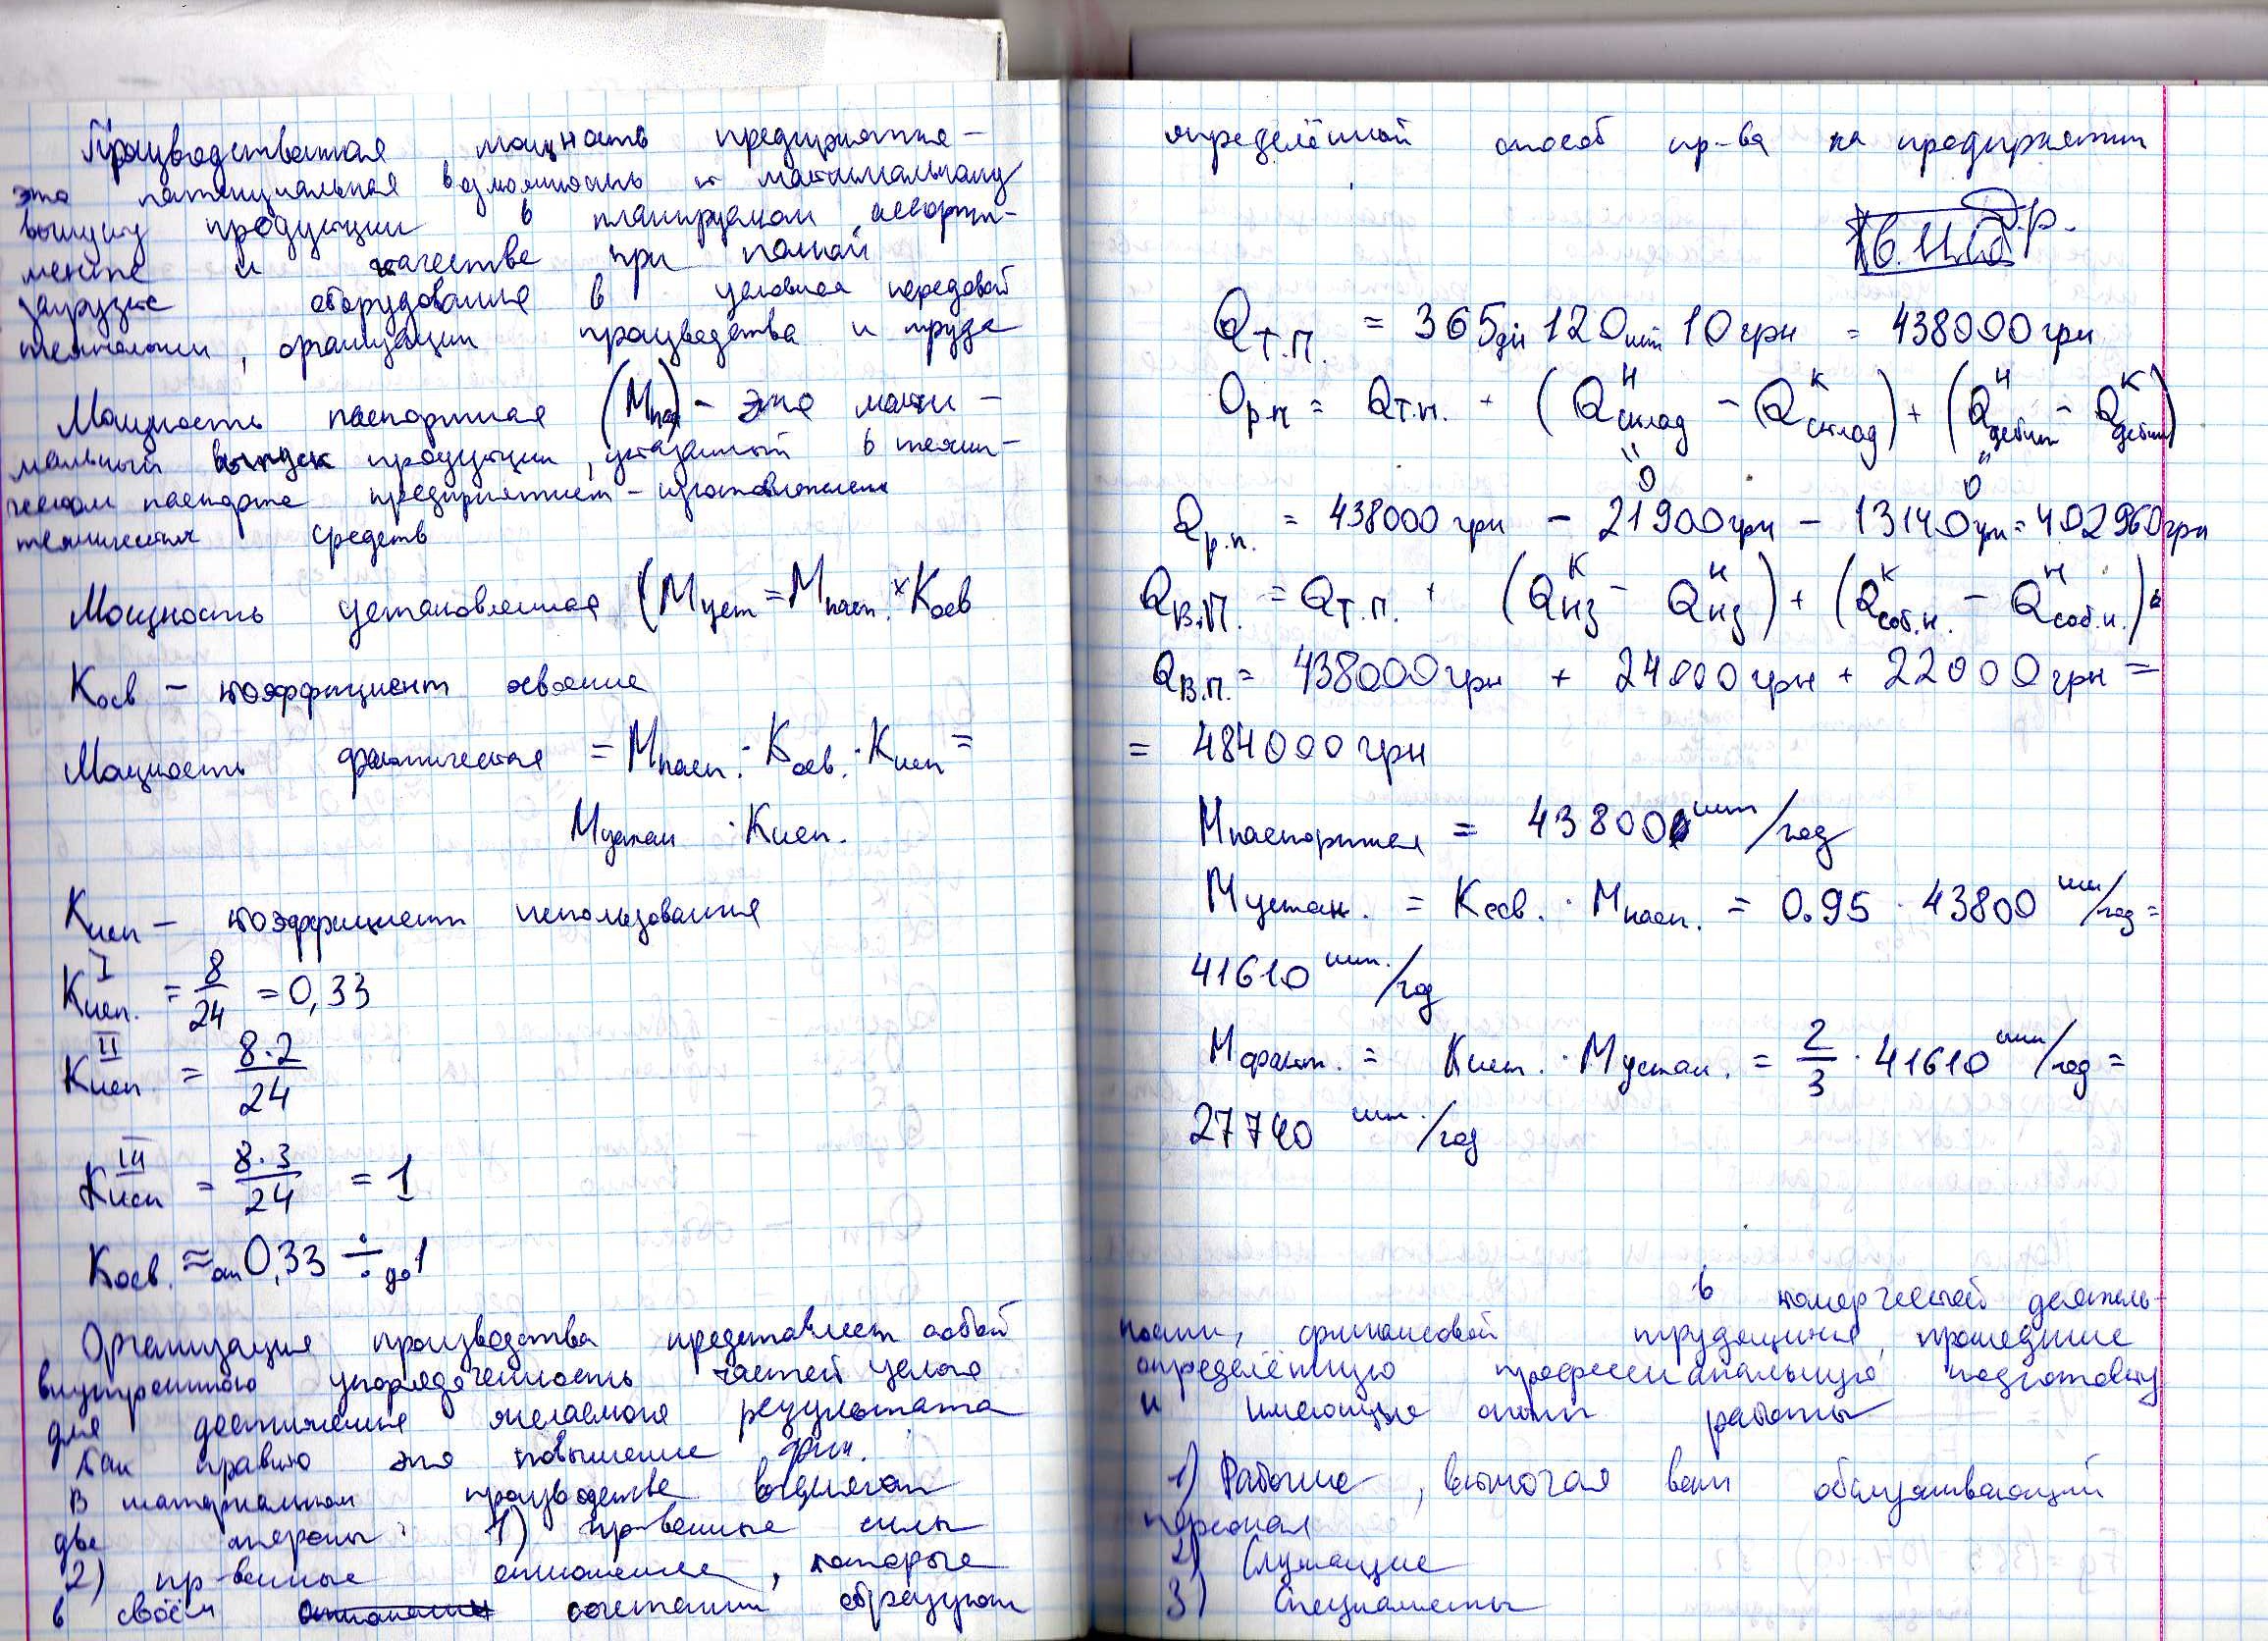 Производственная мощность предприятия –
это потенциальная возможность к максимальному
выпуску продукции в планируемом ассорти-
менте и качестве при полной
загрузке оборудования в условиях передовой
технологии, организации производства и труда
Мощность паспортная (Мпас) – это макси-
мальный выпуск продукции, указанный в техни-
ческом паспорте предприятием – изготовителем
технических средств
Мощность установленная (Муст = Мпасп. × Косв
Косв – коэффициент освоения
Мощность фактическая = Мпасп. · Косв. · Кисп =
Мустан · Кисп.
Кисп – коэффициент использования
Кисп.^I = 8/24 = 0,33
Кисп.^II = 8·2/24
Кисп^III = 8·3/24 = 1
Косв. ≈ от 0,33 ÷ до 1
Организация производства представляет собой
внутреннюю упорядоченность частей целого
для достижения желаемого результата
Как правило это повышение
В материальном производстве выделяют
две стороны: 1) пр-венные силы
2) пр-венные отношения, которые
в своём сочетании образуют
определённой способ пр-ва на предприятии
Qт.п. = 365дн 120шт 10грн = 438000грн
Qр.п = Qт.п. + (Q^н склад – Q^к склад) + (Q^н дебит – Q^к дебит)
" 0 " 0
Qр.п. = 438000грн – 21900грн – 13140грн = 402960грн
Qв.п. = Qт.п. + (Q^к нз – Q^н нз) + (Q^к соб.н. – Q^н соб.н.) =
Qв.п. = 438000грн + 24000грн + 22000грн =
= 484000грн
Мпаспортная = 43800 шт/год
Мустан. = Косв. · Мпасп. = 0.95 · 43800 шт/год =
41610 шт./год
Мфакт. = Кисп. · Мустан. = 2/3 · 41610 шт/год =
27740 шт./год
в коммерческой деятель-
ности, финансовой трудящиеся, прошедшие
определённую профессиональную подготовку
и имеющие опыт работы
1) Рабочие, включая весь обслуживающий
персонал
2) Служащие
3) Специалисты